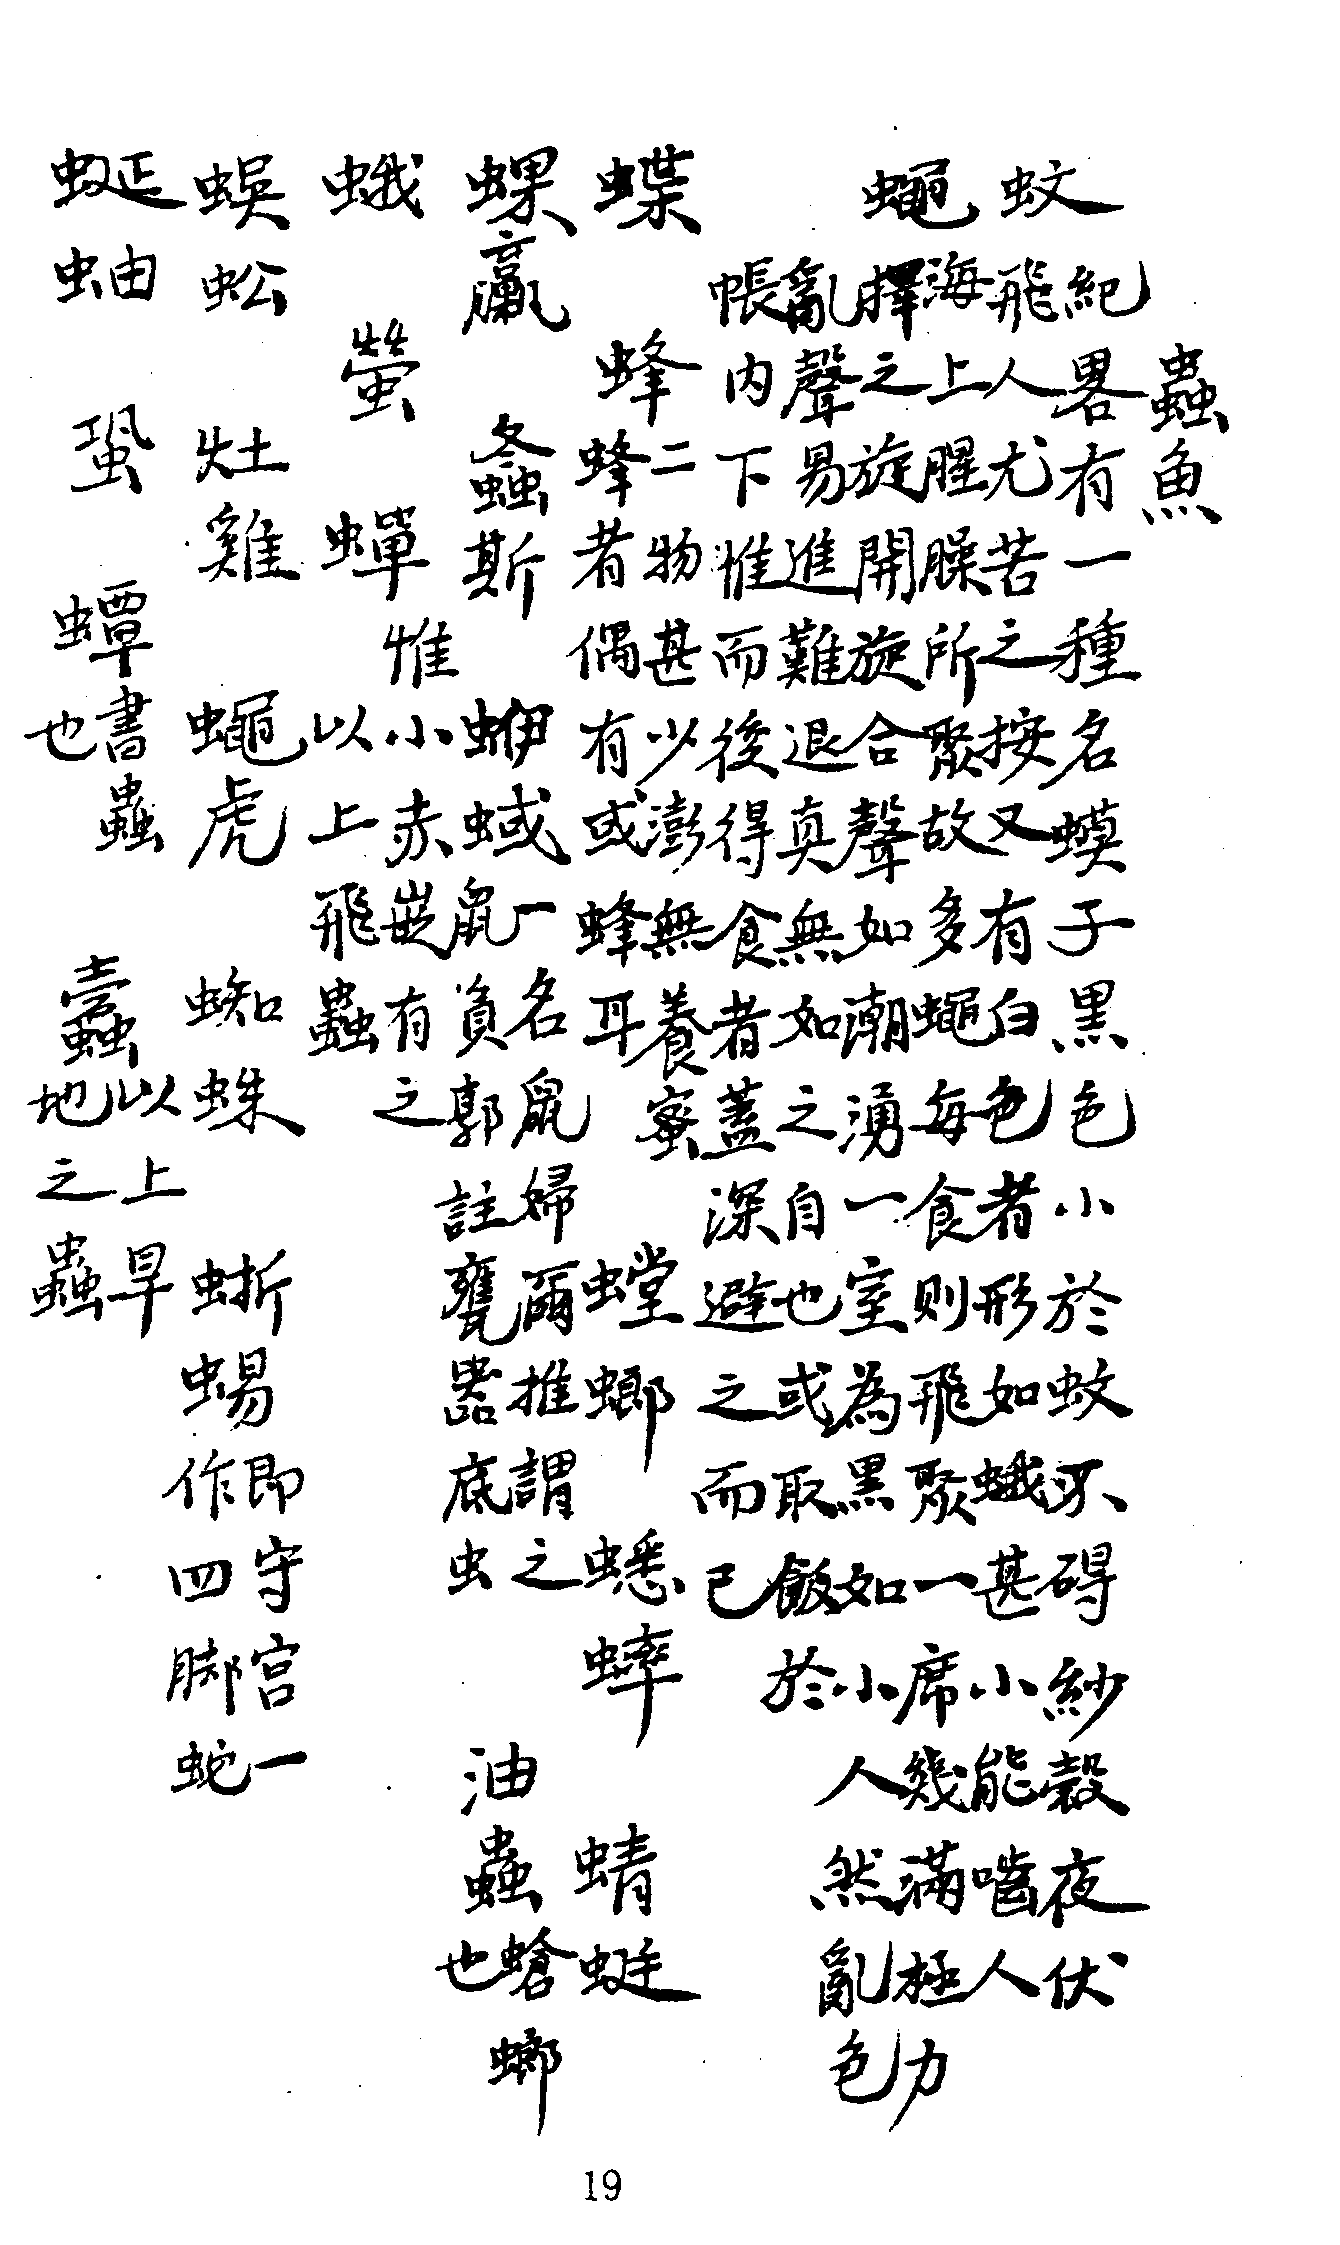 蟲魚
蚊 紀畧有一種名蟆子黑色小於蚊不碍紗縠夜伏
飛人尤苦之按又有白色者形如蛾甚小能嚙人
蠅 海上腥臊所聚故多蠅每食則飛聚一席幾滿極力
擇之旋開旋合聲如潮湧一室為黑如小人然亂色
亂聲易進難退真無如之自也或取飯於
帳內下惟而後得食者蓋深避之而已
蝶 蜂 二物甚少澎無養蜜
蜂者偶有或蜂耳 螳螂 蟋蟀 蜻蜓
蜾蠃 螽斯 蛜蜮 一名鼠婦爾推謂之
鼠負郭註甕器底虫 油蟲 螥螂
也
蛾 螢 蟬 惟小赤嵌有之
以上飛蟲
蜈蚣 灶雞 蠅虎 蜘蛛 蜥蜴 即守宮一
作四脚蛇
蜒蚰 蛩 蟫 書蟲
也 蠹 以上旱
地之蟲
19